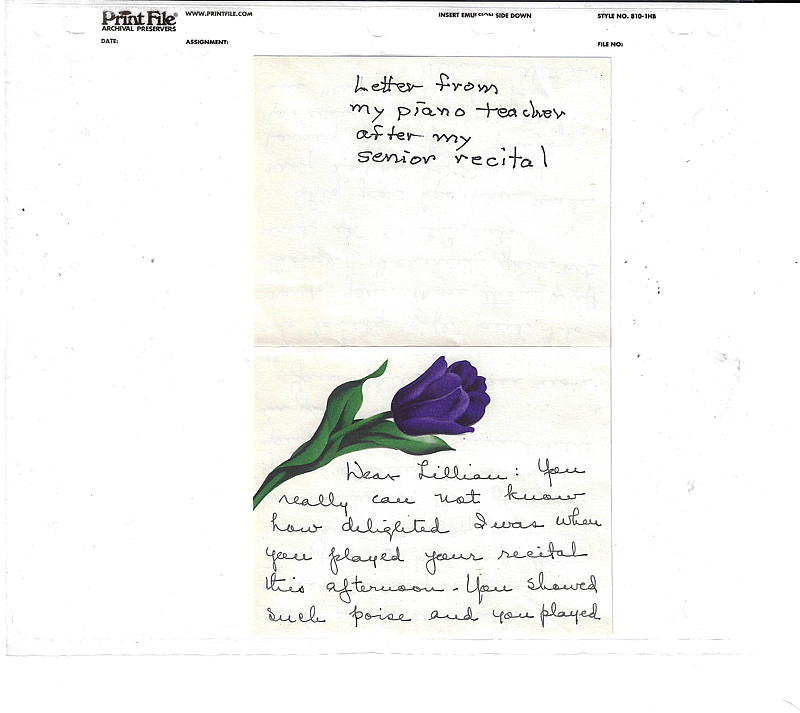 Print File® WWW.PRINTFILE.COM INSERT EMULSION SIDE DOWN STYLE NO. 810-1HB
ARCHIVAL PRESERVERS
DATE: ASSIGNMENT: FILE NO:
Letter from
my piano teacher
after my
senior recital
Dear Lillian: You
really can not know
how delighted I was when
you played your recital
this afternoon. You showed
such poise and you played